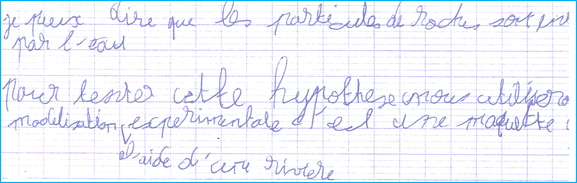 je peux dire que les particules de roches sont
par l'eau
pour tester cette hypothese nous utilisero
modélisation experimentale c'est une maquette
à l'aide d'une riviere